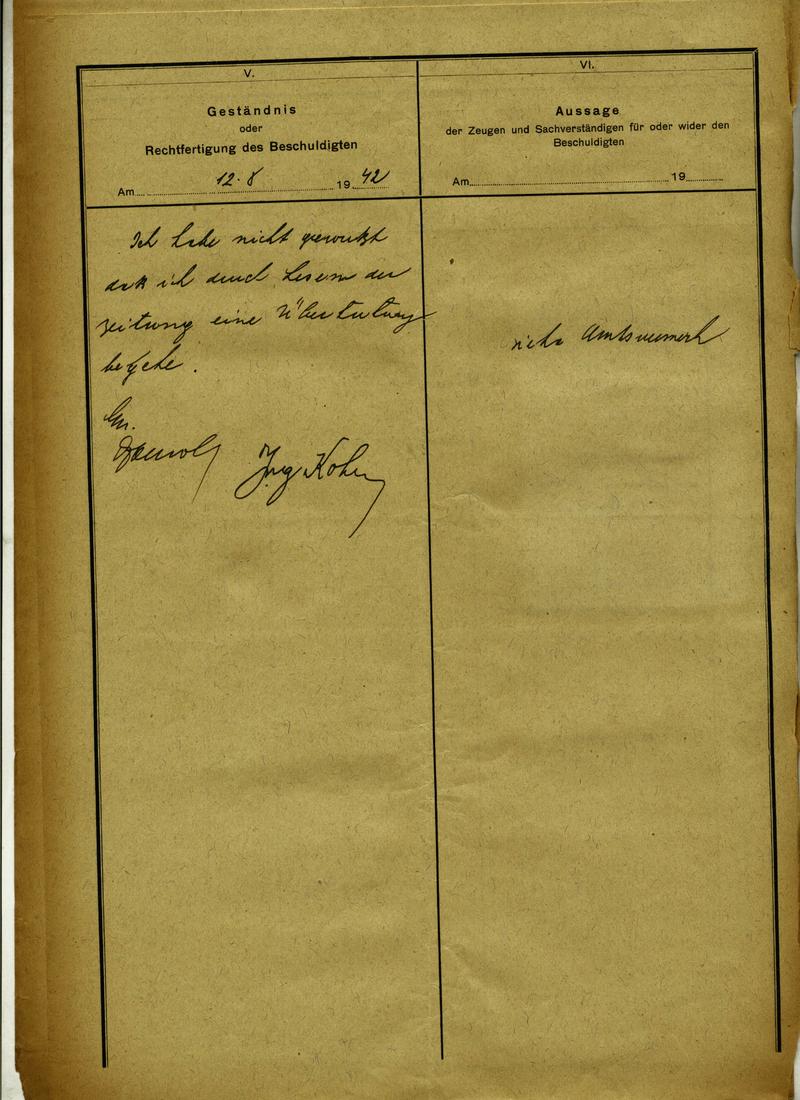 V.
Geständnis
oder
Rechtfertigung des Beschuldigten
Am 12.8 1942
Ich habe nicht gewußt
daß ich durch Lesen der
Zeitung eine Übertretung
begehe.
Ing Kohn
VI.
Aussage
der Zeugen und Sachverständigen für oder wider den
Beschuldigten
Am 19
siehe Amtsvermerk